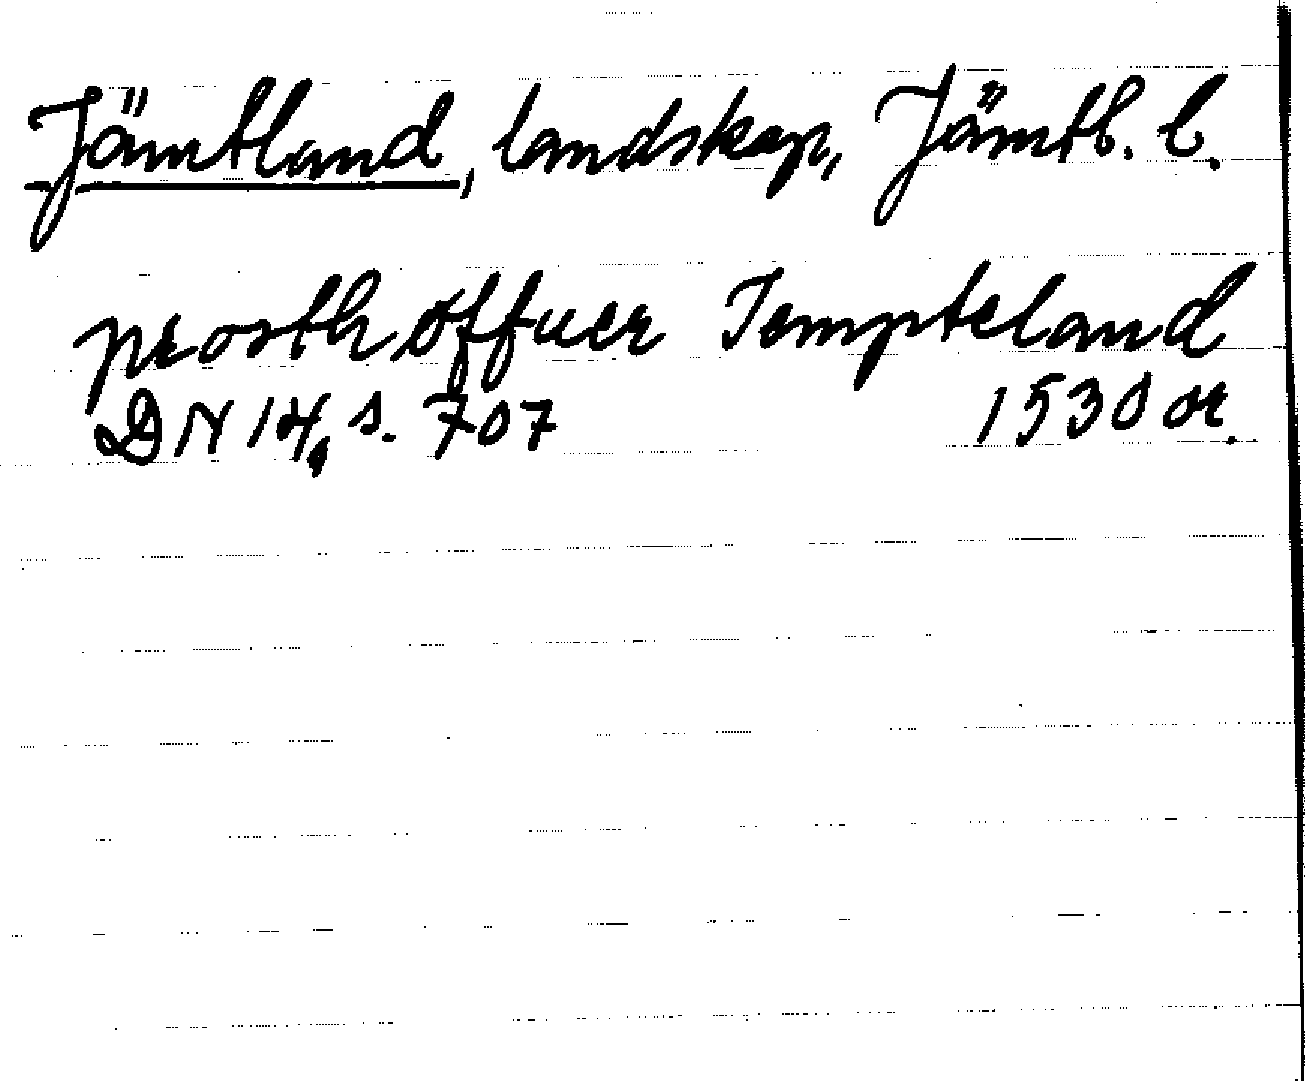 Jämtland, landskap, Jämtl. l.
prosth øffuer Jempteland
DN 14, s. 707 1530 or.